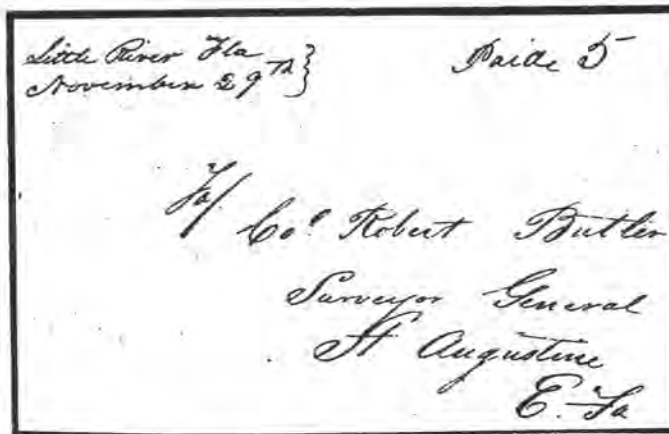 Little River Fla
November 29th } Paide 5
To/
Col. Robert Butler
Surveyor General
St Augustine
E. Fa